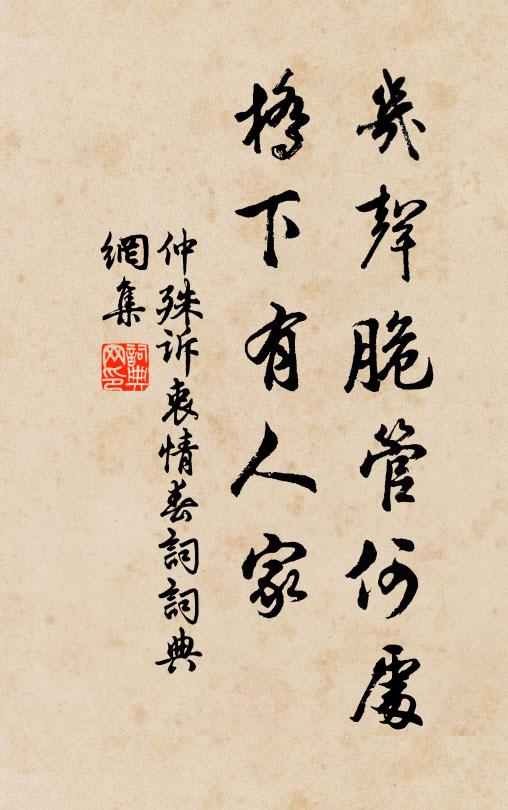 幾聲脆管何處
橋下有人家
仲殊訴衷情春詞詞典
網集
詞典網印